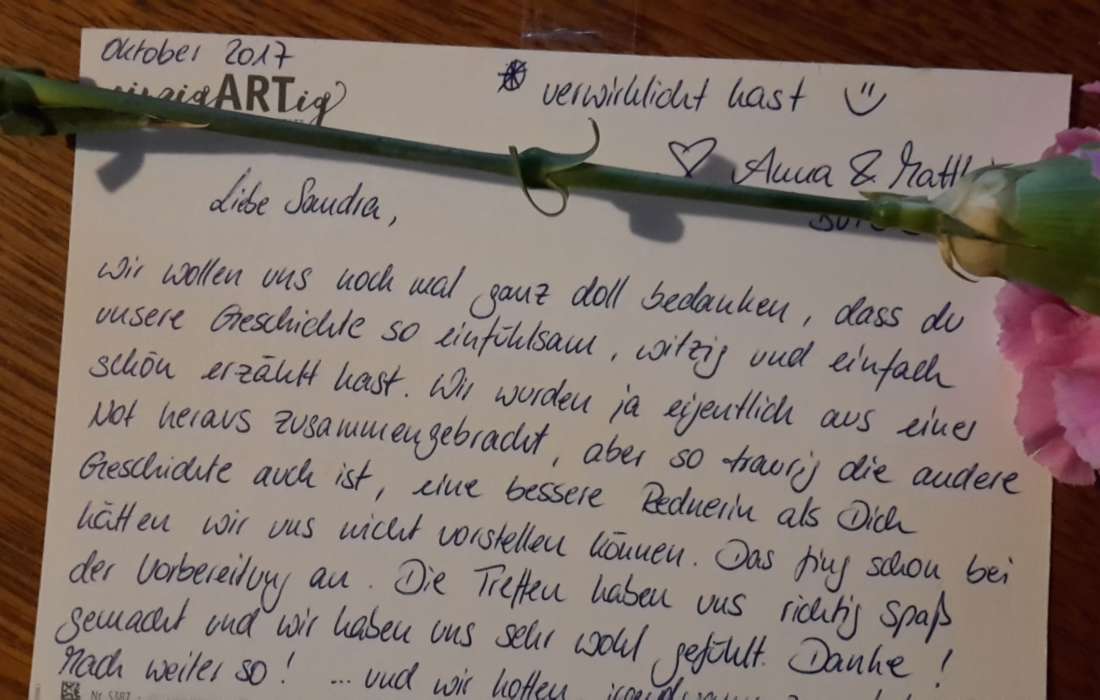 Oktober 2017
ARTig
* verwirklicht hast
Anna &
Liebe Sandra,
wir wollen uns noch mal ganz doll bedanken, dass du
unsere Geschichte so einfühlsam, witzig und einfach
schön erzählt hast. Wir wurden ja eigentlich aus einer
Not heraus zusammengebracht, aber so traurig die andere
Geschichte auch ist, eine bessere Rednerin als Dich
hätten wir uns nicht vorstellen können. Das fing schon bei
der Vorbereitung an. Die Treffen haben uns richtig Spaß
gemacht und wir haben uns sehr wohl gefühlt. Danke!
Mach weiter so! ... und wir hoffen,
Nr. 5387